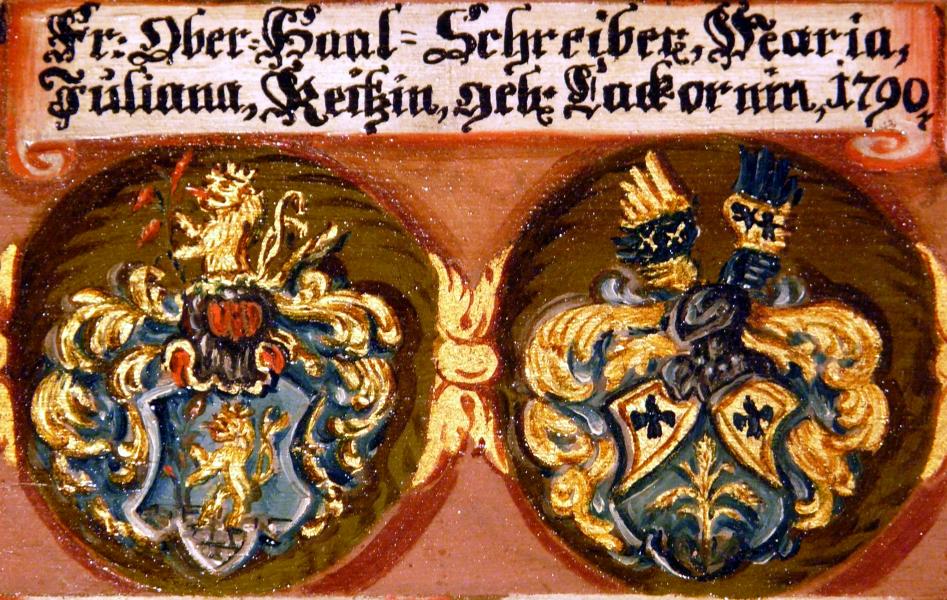 Fr: Ober-Saal-Schreiber, Maria,
Juliana, Reitzin, geb: Lackornin, 1790